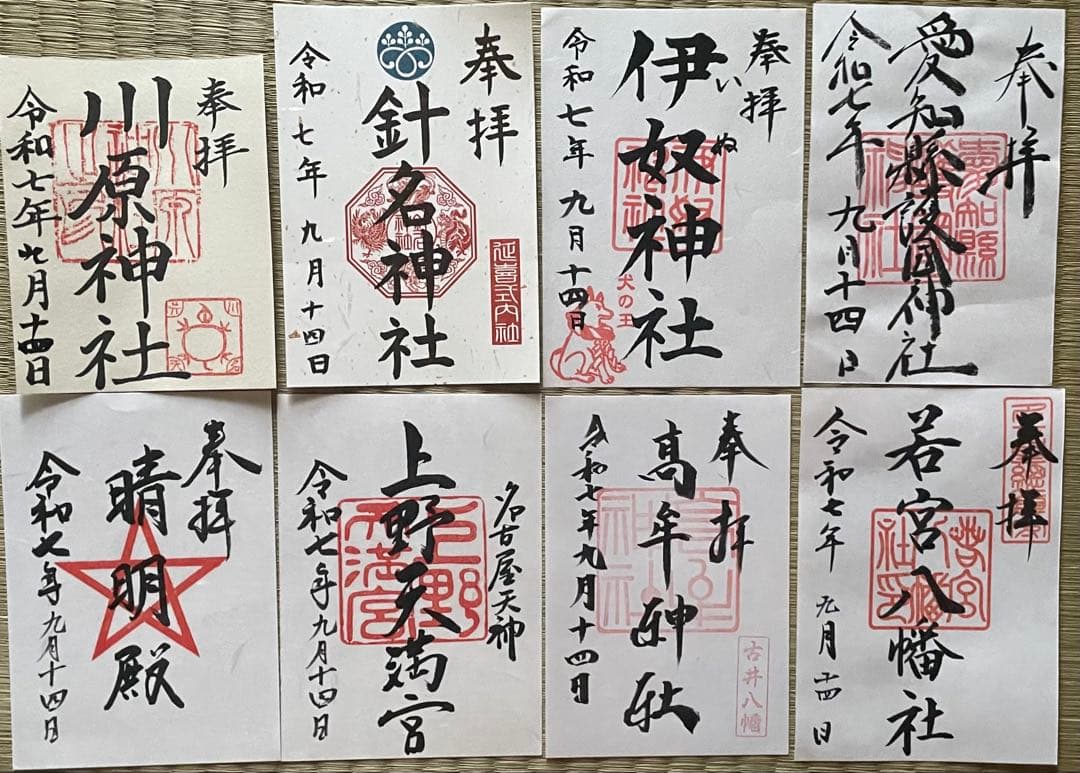 奉拝
川原神社
令和七年九月十四日
奉拝
針名神社
延喜式内社
令和七年九月十四日
奉拝
伊奴神社
いぬ
犬の王
令和七年九月十四日
奉拝
愛知縣護國神社
愛知縣護國神社
令和七年九月十四日
奉拝
晴明殿
令和七年九月十四日
奉拝
名古屋天神
上野天満宮
上野天満宮
令和七年九月十四日
奉拝
高牟神社
古井八幡
令和七年九月十四日
奉拝
若宮八幡社
令和七年九月十四日